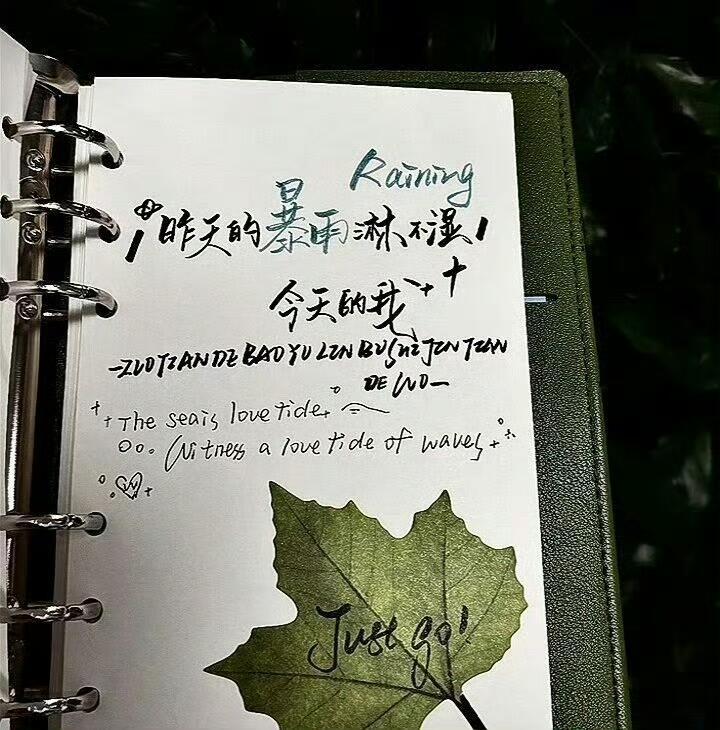 Raining
昨天的暴雨淋不湿
今天的我
-ZUOTIANDEBAOYULINBUSHIJINTIAN
DEWO-
The sea is love tide.
Witness a love tide of waves
Just go!